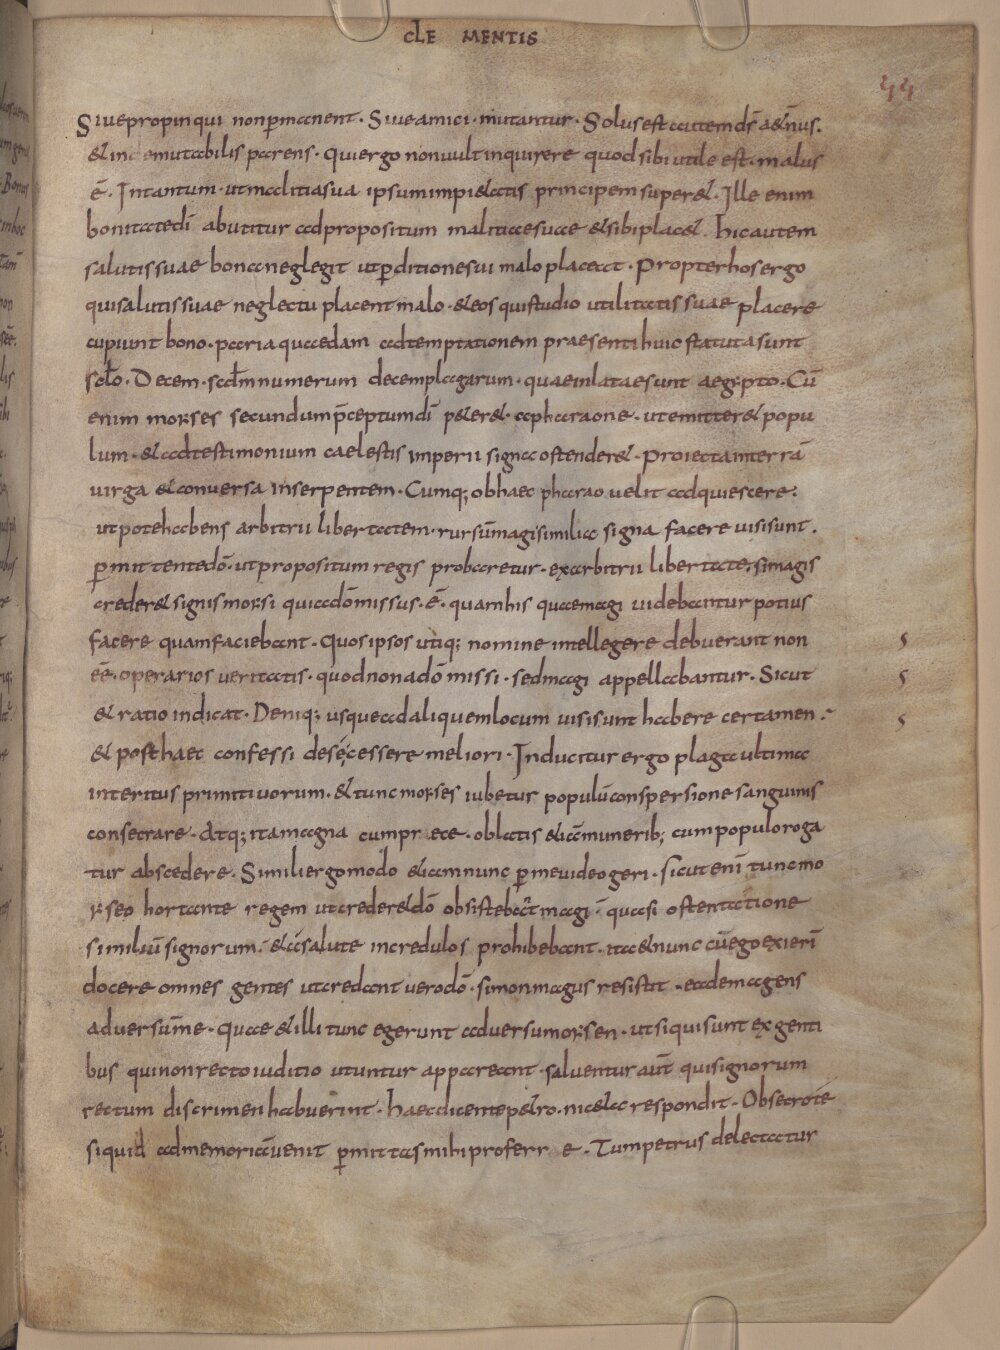 CLE MENTIS
44
Siue propinqui non p̄manent · Siue amici · mutantur · Solus est autem d̄s aet̄nus.
& in cemutabilis parens · Qui ergo non uult inquirere quod sibi utile est · malus
ē · Intantum · ut malitia sua ipsum impi&atis principem super& · Ille enim
bonitate dī abutitur ad propositum malitiae suae & sibi plac& · hic autem
salutis suae bona neglegit ut p̄ditione sui malo placeat · Propter hos ergo
qui salutis suae neglectu placent malo · & eos qui studio utilitatis suae placere
cupiunt bono · paria quaedam ad temptationem praesenti huic statuta sunt
sclo · Decem · scdm numerum decem plagarum · quae inlatae sunt aegypto · Cū
enim morses secundum p̄ceptum dī p&er& · a pharaone · ut emitter& popu
lum · & ad testimonium caelestis imperii signa ostender& · Proiecta in terrā
uirga & conuersa in serpentem · Cumq; ob haec pharao uelit adquiescere ·
utpote habens arbitrii libertatem · rursū magi similia signa facere uisi sunt ·
p̄mittente dō · ut propositum regis probaretur · ex arbitrii libertate, si magis
creder& signis morsi qui a dō missus · ē · quam his quae magi uidebantur potius
facere quam faciebant · Quos ipsos utiq; nomine intellegere debuerant non
eē · operarios ueritatis · quod non a dō missi · sed magi appellabantur · Sicut
& ratio indicat · Deniq; usque ad aliquem locum uisi sunt habere certamen ·
& post haec confessi desé cessere meliori · Inducitur ergo plaga ultima
interitus primitiuorum · & tunc morses iubetur populū conspersione sanguinis
consecrare · Atq; ita magna cum pr ece · oblatis &iā munerib; cum populo roga
tur abscedere · Simili ergo modo &iam nunc p̄ me uideo geri · sicut enī tunc mo
rseo hortante regem ut creder& dō obsistebāt magi · quasi ostentatione
similiū signorum · & ā salute incredulos prohibebant · ita & nunc cū ego exierī
docere omnes gentes ut credant uero dō · simon magus resistit · eadem agens
aduersū me · quae & illi tunc egerunt aduersu morsen · ut si qui sunt ex genti
bus qui non recto iuditio utuntur appareant · saluentur aūt qui signorum
rectum discrimen habuerint · haec dicente p&ro · nic&a respondit · Obsecro tē
si quid ad memoriā uenit p̄mittas mihi proferr e · Tum petrus delectatur